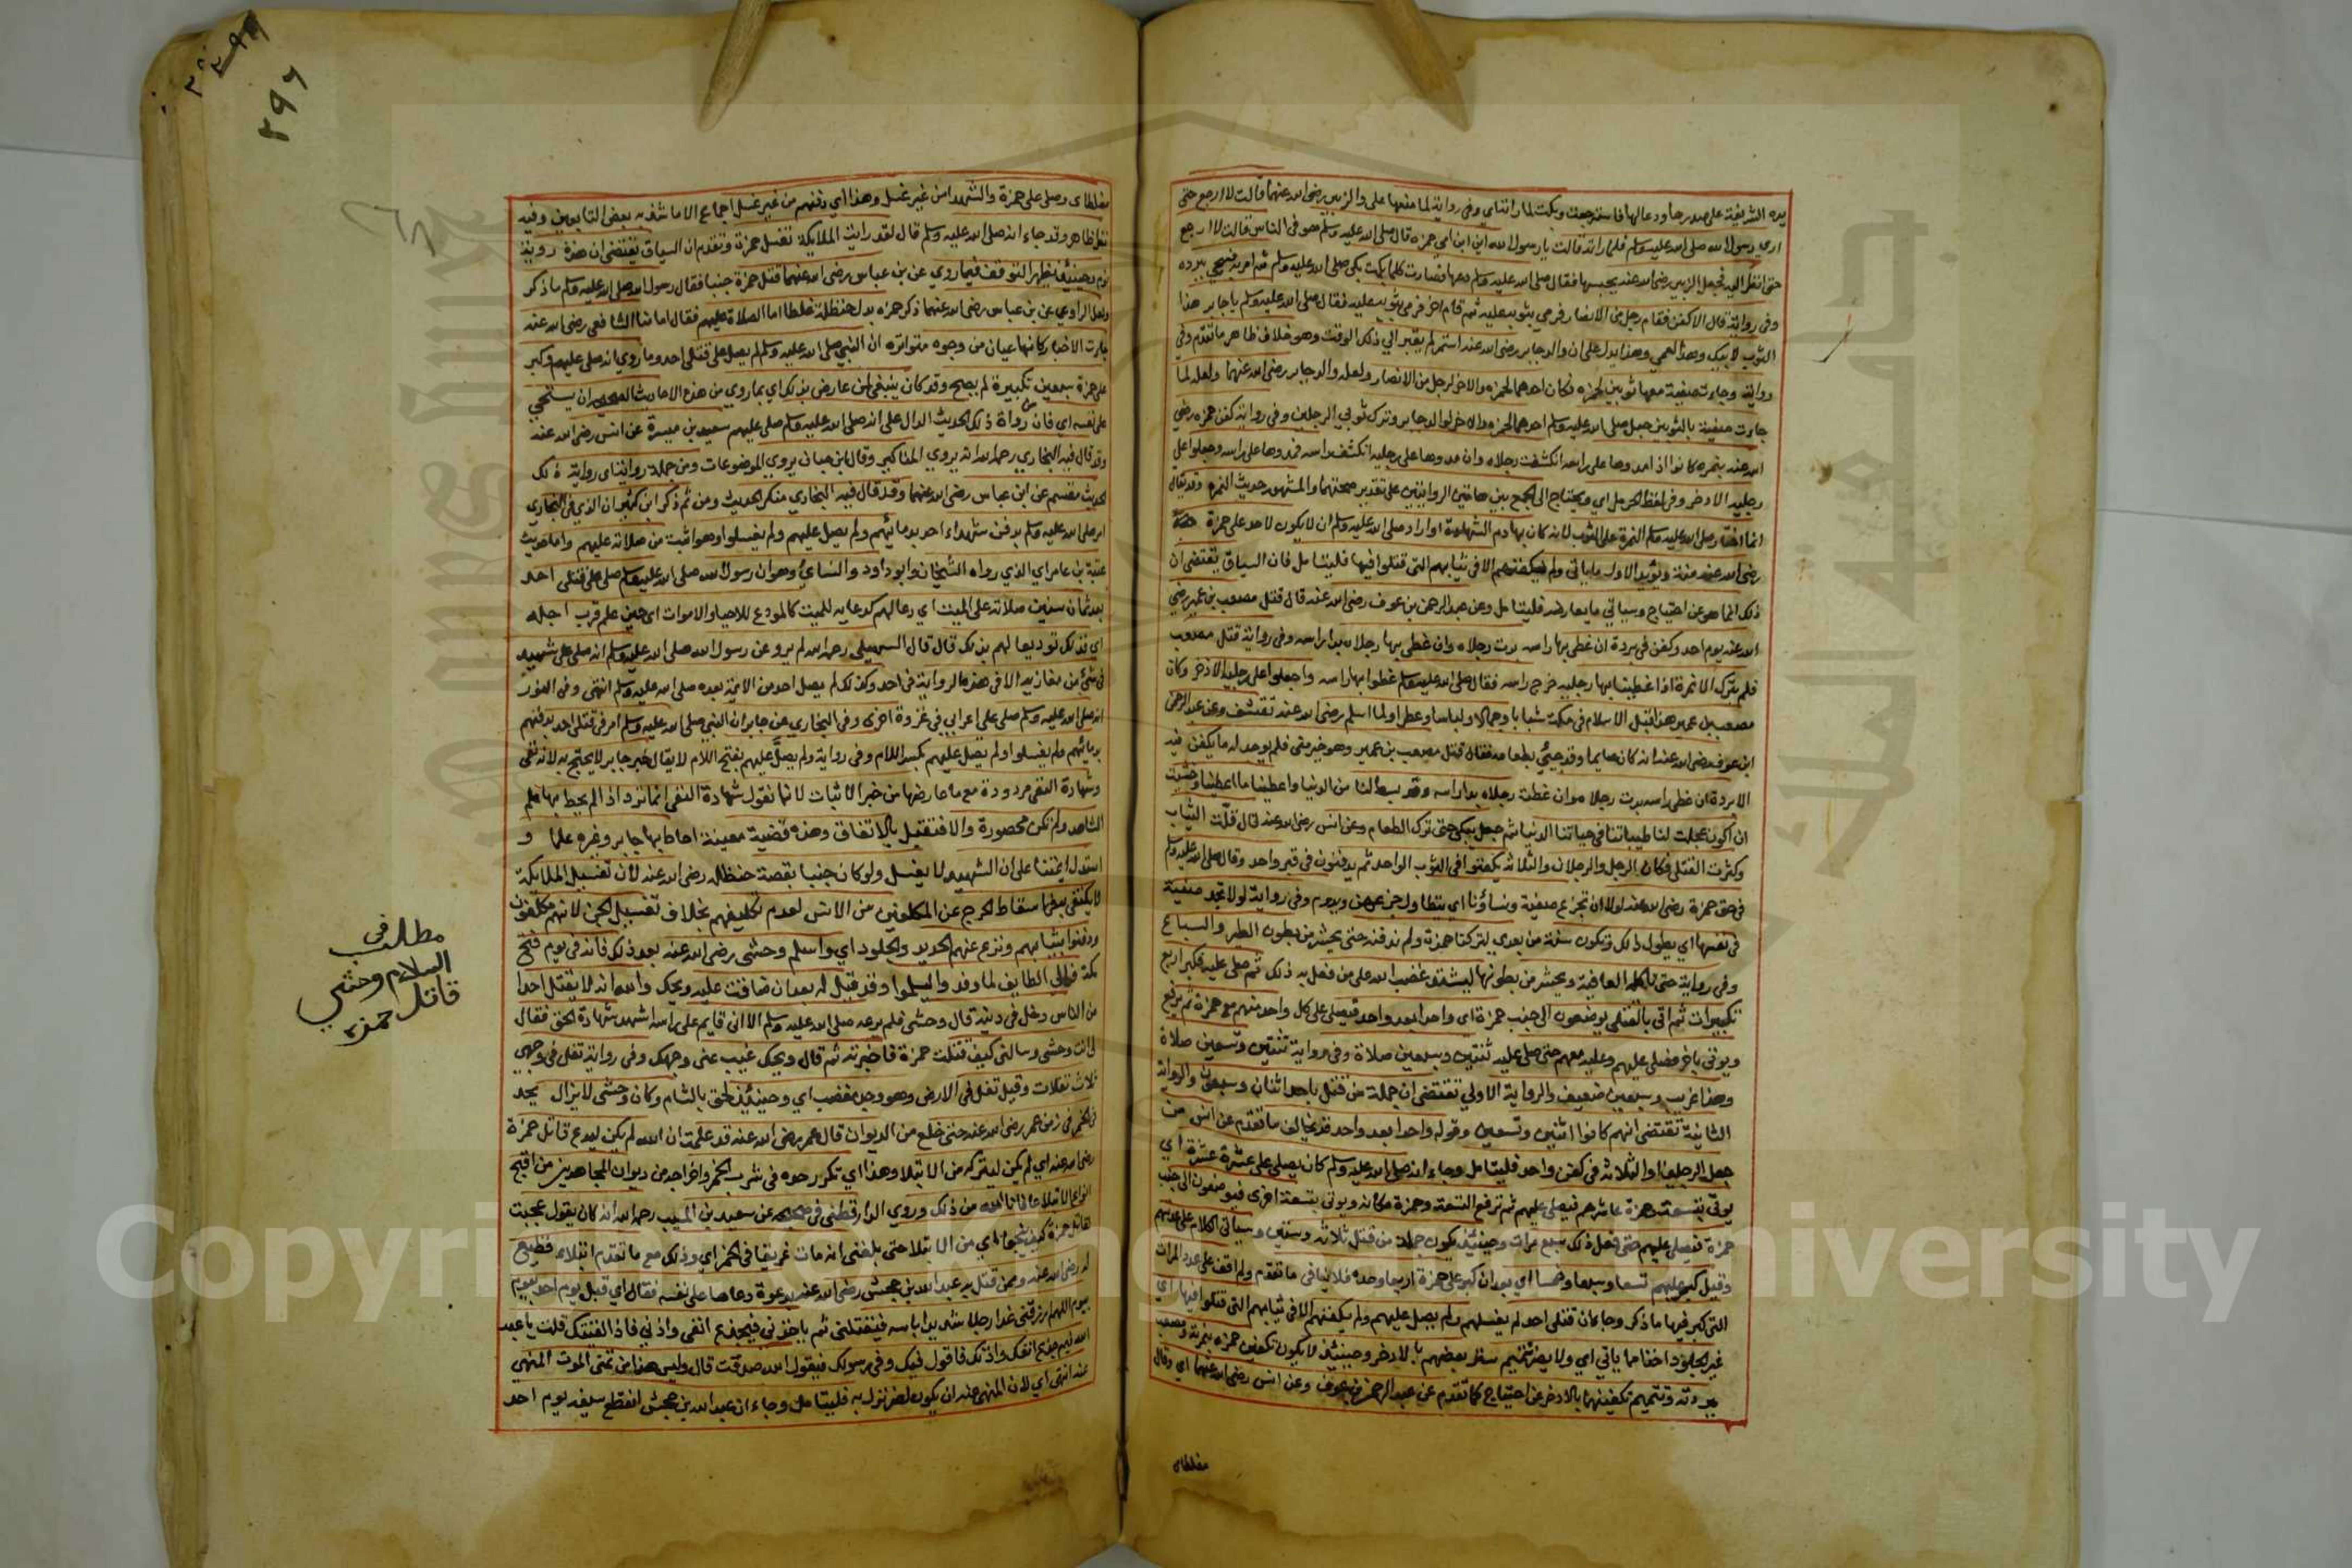 يده الشريفة على صدرها ودعا لها فاسترجعت وبكت لما راتنا اي وفي رواية لما منعها علي والزبير رضي الله عنهما قالت لا ارجع حتى
ارى رسول الله صلى الله عليه وسلم فلما راته قالت يا رسول الله اين ابن امي حمزه قال صلى الله عليه وسلم هو في الناس قالت لا ارجع
حتى انظر اليه فجعل الزبير رضي الله عنه يحبسها فقال صلى الله عليه وسلم دعها فصارت كلما بكت بكى صلى الله عليه وسلم ثم امر به فسجي ببرده
وفي رواية قال الا كفن فقام رجل من الانصار فرمى بثوبه عليه ثم قام اخر فرمى بثوبه عليه فقال صلى الله عليه وسلم يا جابر هذا
الثوب لابيك وهذا لعمي وهذا يدل على ان والد جابر رضي الله عنه استمر لم يقبر الي ذلك الوقت وهو خلاف ظاهر ما تقدم وفي
رواية وجاءت صفية معها ثوبين لحمزه فكان احدهما لحمزه والاخر لرجل من الانصار ولعله والد جابر رضي الله عنهما ولعله لما
جاءت صفية بالثوبين جعل صلى الله عليه وسلم احدهما لحمزه والاخر لوالد جابر وترك ثوبي الرجلين وفي رواية كفن حمزه رضي
الله عنه بنمره كانوا اذا مدوها على راسه انكشفت رجلاه وان مدوها على رجليه انكشف راسه فمدوها على راسه وجعلوا على
رجليه الاذخر وفي لفظ الحرمل اي ويحتاج الى الجمع بين هاتين الروايتين على تقدير صحتهما والمشهور حديث النمره وقد يقال
انما اختار صلى الله عليه وسلم النمرة على الثوب لانه كان بها دم الشهادة او اراد صلى الله عليه وسلم ان لا يكون لاحد على حمزة
رضي الله عنه منة ويؤيد الاول ما ياتي ولم يكفنهم الا في ثيابهم التي قتلوا فيها فليتامل فان السياق يقتضي ان
ذلك انما هو عن احتياج وسياتي ما يعارضه فليتامل وعن عبد الرحمن بن عوف رضي الله عنه قال قتل مصعب بن عمير رضي
الله عنه يوم احد وكفن في بردة ان غطي بها راسه بدت رجلاه وان غطي بها رجلاه بدا راسه وفي رواية قتل مصعب
فلم يترك الا نمرة اذا غطينا بها رجليه خرج راسه فقال صلى الله عليه وسلم غطوا بها راسه واجعلوا على رجليه الاذخر وكان
مصعب بن عمير هذا قبل الاسلام فتى مكة شبابا وجمالا ولباسا وعطرا ولما اسلم رضي الله عنه تقشف وعن عبد الرحمن
ابن عوف رضي الله عنه انه كان صايما وقد جيئ بطعامه فقال قتل مصعب بن عمير وهو خير مني فلم يوجد له ما يكفن فيه
الا بردة ان غطي راسه بدت رجلاه وان غطت رجلاه بدا راسه وقد بسط لنا من الدنيا واعطينا ما اعطينا وخشيت
ان اكون عجلت لنا طيباتنا في حياتنا الدنيا ثم جعل يبكي حتى ترك الطعام وعن انس رضي الله عنه قال قلت الثياب
وكثرت القتلى فكان الرجل والرجلان والثلاثة يكفنوا في الثوب الواحد ثم يدفنون في قبر واحد وقال صلى الله عليه وسلم
في حق حمزة رضي الله عنه لولا ان تجزع صفية ونساؤنا اي يتطاول جزعهن ويدوم وفي رواية لولا تجد صفية
في نفسها اي يطول ذلك وتكون سنة من بعدي لتركنا حمزة ولم ندفنه حتى يحشر من بطون الطير والسباع
وفي رواية حتى تاكله العافية ويحشر من بطونها ليشتد غضب الله على من فعل به ذلك ثم صلى عليه فكبر اربع
تكبيرات ثم اتى بالقتلى يوضعون الى جنب حمزة اي واحدا بعد واحد فيصلي على كل واحد منهم مع حمزة ثم يرفع
ويوتى باخر فصلى عليهم وعليه معهم حتى صلى عليه ثنتين وسبعين صلاة وفي رواية ثنتين وتسعين صلاة
وهذا غريب وسبعين ضعيف والرواية الاولي تقتضي ان جملة من قتل باحد اثنان وسبعون والرواية
الثانية تقتضي انهم كانوا اثنين وتسعين وقوله واحدا بعد واحد قد يخالف ما تقدم عن انس من
جعل الرجلين او الثلاثة في كفن واحد فليتامل وجاء انه صلى الله عليه وسلم كان يصلي على عشرة عشرة اي
يوتى بتسعة وحمزة عاشرهم فيصلي عليهم ثم ترفع التسعة وحمزة مكانه ويوتى بتسعة اخرى فيوضعون الى جنب
حمزة فيصلي عليهم حتى فعل ذلك سبع مرات وحينئذ يكون جملة من قتل ثلاثة وستين وسياتي الكلام على عدتهم
وقيل كبر عليهم تسعا وسبعا وخمسا اي بعد ان كبر على حمزة اربعا وحده فلا ينافي ما تقدم ولم اقف على عدد المرات
التي كبر فيها ما ذكر وجا ان قتلى احد لم يغسلهم ولم يصل عليهم ولم يكفنهم الا في ثيابهم التي قتلوا فيها اي
غير الجلود اخذا مما ياتي اي ولا يضر تتميم ستر بعضهم بالاذخر وحينئذ لا يكون تكفين حمزه بنمرته ومصعب
ببردته وتتميم تكفينهما بالاذخر عن احتياج كما تقدم عن عبد الرحمن بن عوف وعن انس رضي الله عنهما اي وقال
مغلطاي
مغلطاى وصلى على حمزة والشهدا من غير غسل وهذا اي دفنهم من غير غسل اجماع الا ما شذ به بعض التابعين وفيه
نظر ظاهر وقد جاء انه صلى الله عليه وسلم قال لقد رايت الملايكة تغسل حمزة وتقدم ان السياق يقتضي ان هذه روية
نوم وحينئذ يظهر التوقف فيما روي عن بن عباس رضي الله عنهما قتل حمزة جنبا فقال رسول الله صلى الله عليه وسلم ما ذكر
ولعل الراوي عن بن عباس رضي الله عنهما ذكر حمزه بدل حنظلة غلطا اما الصلاة عليهم فقال امامنا الشافعي رضي الله عنه
جاءت الاخبار كانها عيان من وجوه متواتره ان النبي صلى الله عليه وسلم لم يصل على قتلى احد وما روي انه صلى عليهم وكبر
على حمزة سبعين تكبيرة لم يصح وقد كان ينبغي لمن عارض بذلك اي بما روي من هذه الاحاديث الصحيحه ان يستحيي
على نفسه اي فان من رواة ذلك الحديث الدال على انه صلى الله عليه وسلم صلى عليهم سعيد بن ميسرة عن انس رضي الله عنه
وقد قال فيه البخاري رحمه الله انه يروي المناكير وقال ابن حبان يروي الموضوعات ومن جملة رواينا اي رواية ذلك
الحديث مقسم عن ابن عباس رضي الله عنهما وقد قال فيه البخاري منكر الحديث ومن ثم ذكر ابن كثير ان الذي في البخاري
امر صلى الله عليه وسلم بدفن شهداء احد بدمائهم ولم يصل عليهم ولم يغسلوا وهو اثبت من صلاته عليهم واما حديث
عقبة بن عامر اي الذي رواه الشيخان وابو داود والنسائي وهو ان رسول الله صلى الله عليه وسلم صلى على قتلى احد
بعد ثمان سنين صلاته على الميت اي دعا لهم كدعايه للميت كالمودع للاحيا والاموات اى حين علم قرب اجله
اي فذلك توديعا لهم بذلك قال قال السهيلي رحمه الله لم يرو عن رسول الله صلى الله عليه وسلم انه صلى على شهيد
في شئ من مغازيه الا في هذه الرواية في احد وكذلك لم يصل احد من الايمة بعده صلى الله عليه وسلم انتهى وفي النور
انه صلى الله عليه وسلم صلى على اعرابي في غزوة اخرى وفي البخاري عن جابر ان النبي صلى الله عليه وسلم امر في قتلى احد بدفنهم
بدمائهم ولم يغسلوا ولم يصل عليهم بكسر اللام وفي رواية ولم يصل عليهم بفتح اللام لا يقال خبر جابر لا يحتج به لانه نفى
وشهادة النفي مردودة مع ما عارضها من خبر الاثبات لانا نقول شهادة النفي انما ترد اذا لم يحط بها علم
الشاهد ولم تكن محصورة والا فتقبل بالاتفاق وهذه قضية معينة احاط بها جابر وغيره علما و
استدل ايمتنا على ان الشهيد لا يغسل ولو كان جنبا بقصة حنظلة رضي الله عنه لان تغسيل الملايكة
لا يكتفى به في اسقاط الحرج عن المكلفين من الانس لعدم تكليفهم بخلاف تغسيل الجن لانهم مكلفون
ودفنوا بثيابهم ونزع عنهم الحديد والجلود اي واسلم وحشي رضي الله عنه بعد ذلك فانه في يوم فتح
مكة فر الى الطايف لما وفد واليسلموا وقد قيل له بعد ان ضاقت عليه ويحك والله انه لا يقتل احدا
من الناس دخل في دينه قال وحشي فلم يرعه صلى الله عليه وسلم الا اني قايم على راسه اشهد شهادة الحق فقال
لي انت وحشى وسالني كيف قتلت حمزة فاخبرته ثم قال ويحك غيب عني وجهك وفي رواية تفل في وجهي
ثلاث تفلات وقيل تفل في الارض وهو وجل مغضب اي وحينئذ لحق بالشام وكان وحشي لا يزال يحد
في الخمر في زمن عمر رضي الله عنه حتى خلع من الديوان قال عمر رضي الله عنه قد علمت ان الله لم يكن ليدع قاتل حمزة
رضي الله عنه اي لم يكن ليتركه من الابتلا وهذا اي تكرر حده في شرب الخمر واخراجه من ديوان المجاهدين من اقبح
انواع الابتلا عافانا الله من ذلك وروي الدارقطني في صحيحه عن سعيد بن المسيب رحمه الله انه كان يقول عجبت
لقاتل حمزة كيف ينجوا اي من الابتلا حتى بلغني انه مات غريقا في الخمر اي وذلك مع ما تقدم ابتلاء فظيع
له رضي الله عنه وممن قتل به عبد الله بن جحش رضي الله عنه بدعوة دعاها على نفسه فقال اي قبل يوم احد بيوم
بيوم اللهم ارزقني غدا رجلا شديدا باسه فيقتلني ثم ياخذني فيجدع انفي واذني فاذا لقيتك قلت يا عبد
الله فيم جدع انفك واذنك فاقول فيك وفي رسولك فيقول الله صدقت قال وليس هذا من تمني الموت المنهي
عنه انتهى اي لان المنهي عنه ان يكون لضر نزل به فليتامل وجاء ان عبد الله بن جحش انقطع سيفه يوم احد
مطلب في
اسلام وحشي
قاتل حمزه
٢٩٦
Copyright © King Saud University